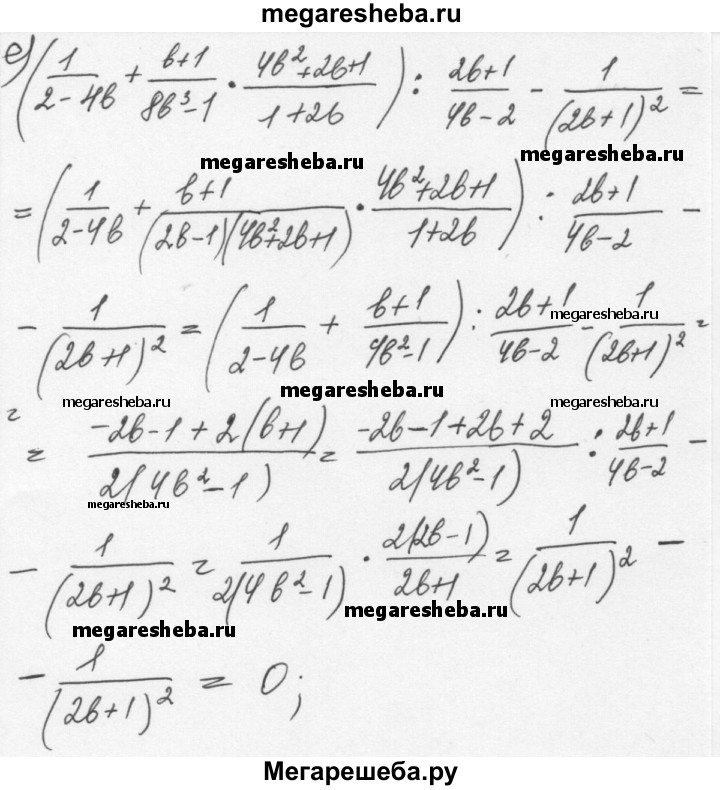 megaresheba.ru
е) (1/(2-4b) + (b+1)/(8b³-1) · (4b²+2b+1)/(1+2b)) : (2b+1)/(4b-2) - 1/(2b+1)² =
megaresheba.ru megaresheba.ru
= (1/(2-4b) + (b+1)/((2b-1)(4b²+2b+1)) · (4b²+2b+1)/(1+2b)) : (2b+1)/(4b-2) -
- 1/(2b+1)² = (1/(2-4b) + (b+1)/(4b²-1)) : (2b+1)/(4b-2) - 1/(2b+1)² =
megaresheba.ru
megaresheba.ru megaresheba.ru megaresheba.ru
= (-2b-1+2(b+1))/(2(4b²-1)) = (-2b-1+2b+2)/(2(4b²-1)) : (2b+1)/(4b-2) -
megaresheba.ru
- 1/(2b+1)² = 1/(2(4b²-1)) · (2(2b-1))/(2b+1) = 1/(2b+1)² -
megaresheba.ru megaresheba.ru
- 1/(2b+1)² = 0;
Мегарешеба.ру